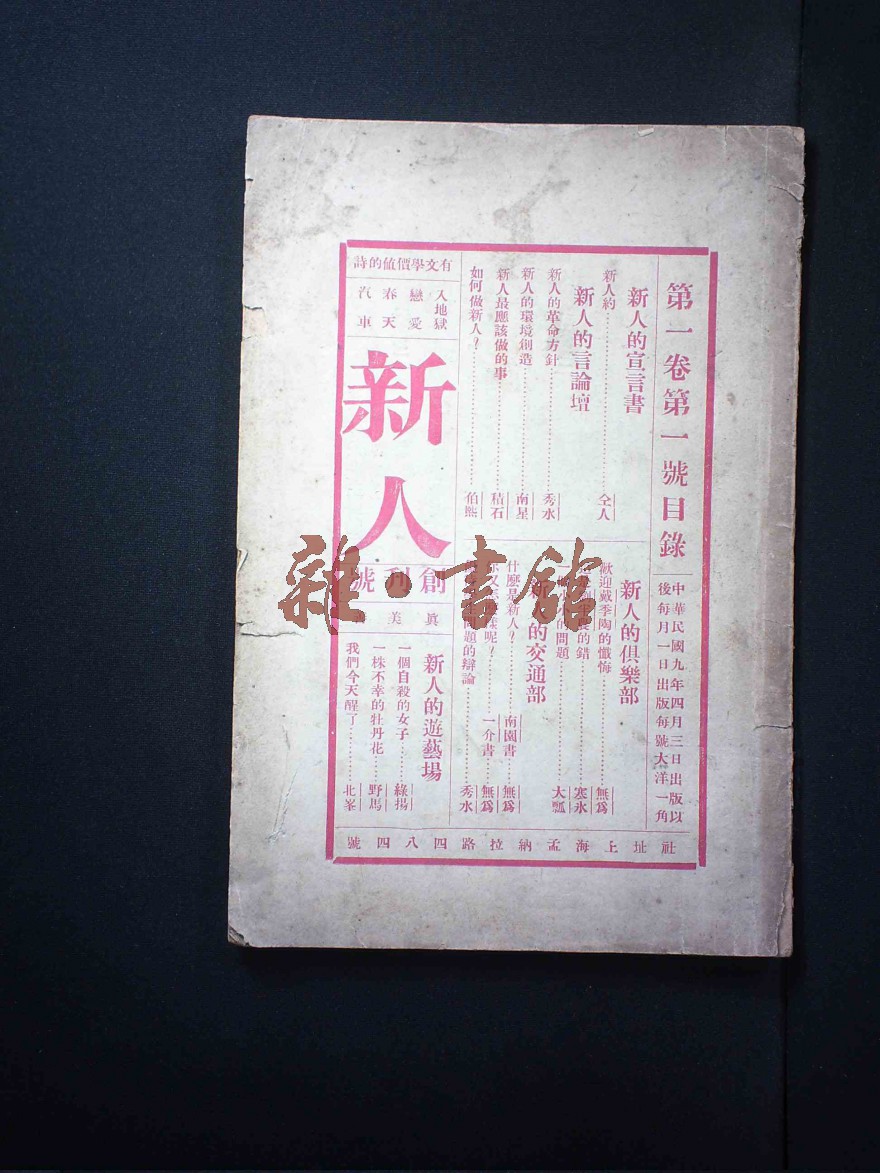 第一卷第一號目錄
中華民國九年四月三日出版以
後每月一日出版每號大洋一角
新人的宣言書
新人約 仝人
新人的言論壇
新人的革命方針 秀水
新人的環境創造 南星
新人最應該做的事 積石
如何做新人? 伯熊
新人的俱樂部
歡迎戴季陶的懺悔 無為
的錯 塞氷
的問題 大瓢
新人的交通部
什麼是新人? 南園書 無為
呢? 一介書 無為
問題的辯論 秀水
有文學價値的詩
入地獄
戀愛
春天
汽車
新人
創刊號
眞 美
新人的遊藝場
一個自殺的女子 綠揚
一株不幸的牡丹花 野馬
我們今天醒了 北峯
社址上海孟納拉路四八四號
雜·書館